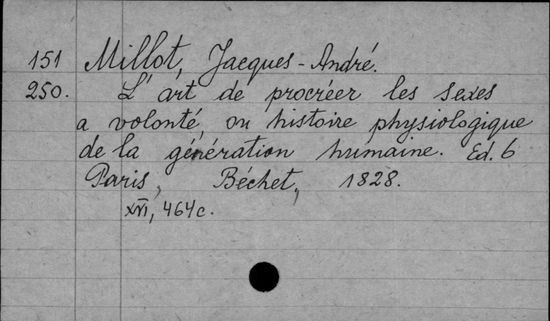 151 Millot, Jacques-André.
250. L'art de procréer les sexes
a volonté, ou histoire physiologique
de la génération humaine. Ed. 6
Paris, Béchet, 1828.
XVI, 464 c.